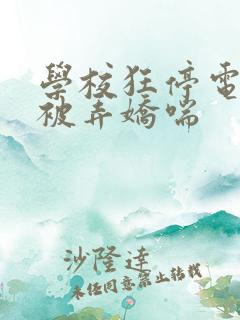 學校狂停電
被弄嬌喘
沙隆達
未任同意禁止轉載